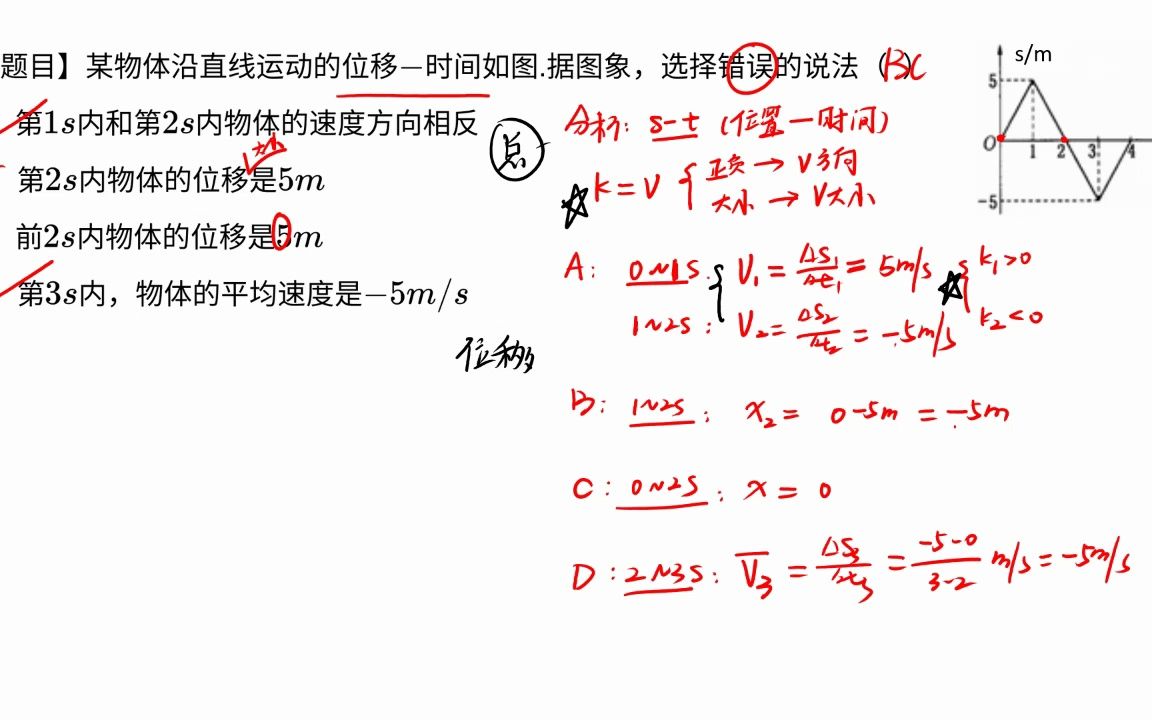 题目】某物体沿直线运动的位移—时间如图.据图象，选择错误的说法（BC）
第1s内和第2s内物体的速度方向相反
第2s内物体的位移是5m
前2s内物体的位移是5m
第3s内，物体的平均速度是−5m/s
位移
总
分析: s-t (位置一时间)
k = v { 正负 → V方向
大小 → V大小
A: 0~1s: { V₁ = ΔS₁/Δt₁ = 5m/s { k₁>0
1~2s: V₂ = ΔS₂/Δt₂ = -5m/s k₂<0
B: 1~2s: x₂ = 0-5m = -5m
C: 0~2s: x = 0
D: 2~3s: V̄₃ = ΔS₃/Δt₃ = (-5-0)/(3-2) m/s = -5m/s
s/m
5
O 1 2 3 4
-5